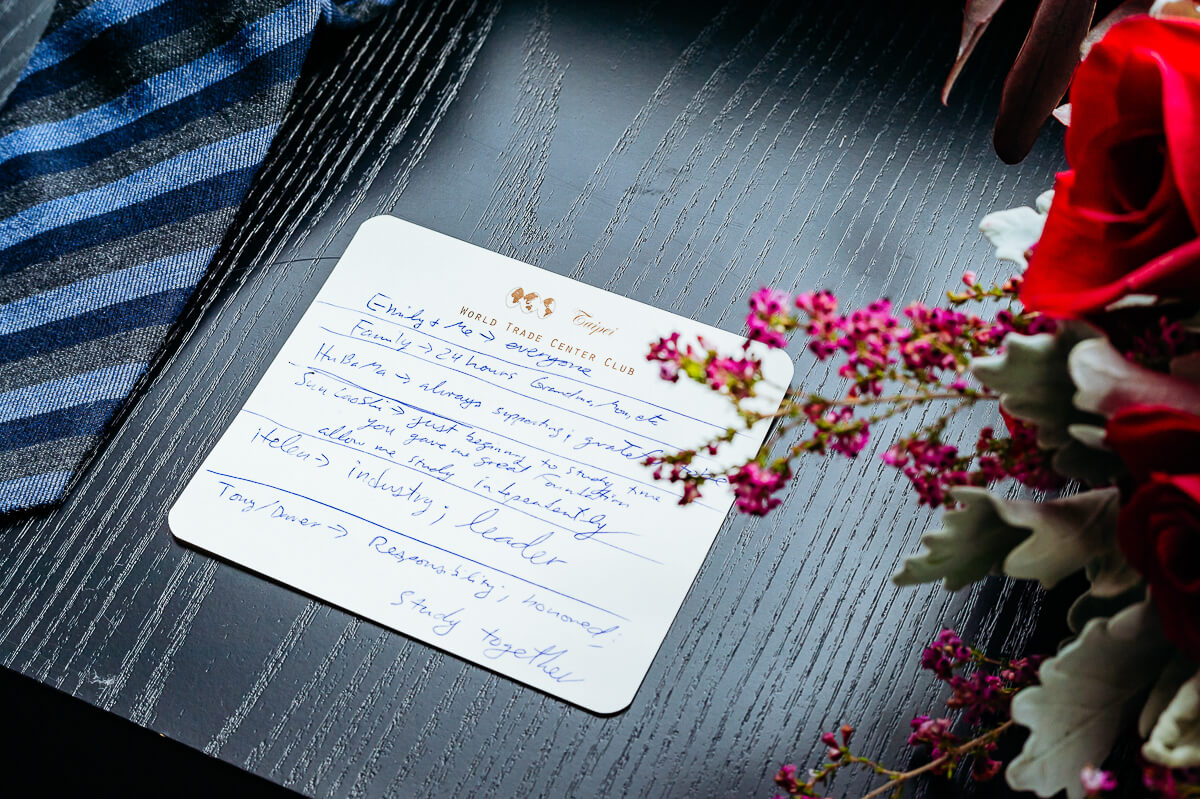 Taipei
WORLD TRADE CENTER CLUB
Emily + Me → everyone
Family → 24 hours Grandma, Mom, etc
HuBaMa → always supporting;
Sun LaoShi → just beginning to study
you gave me great Foundation
allow me study independently
Helen → industry; leader
Tony/ → Responsibility; honored;
Study together